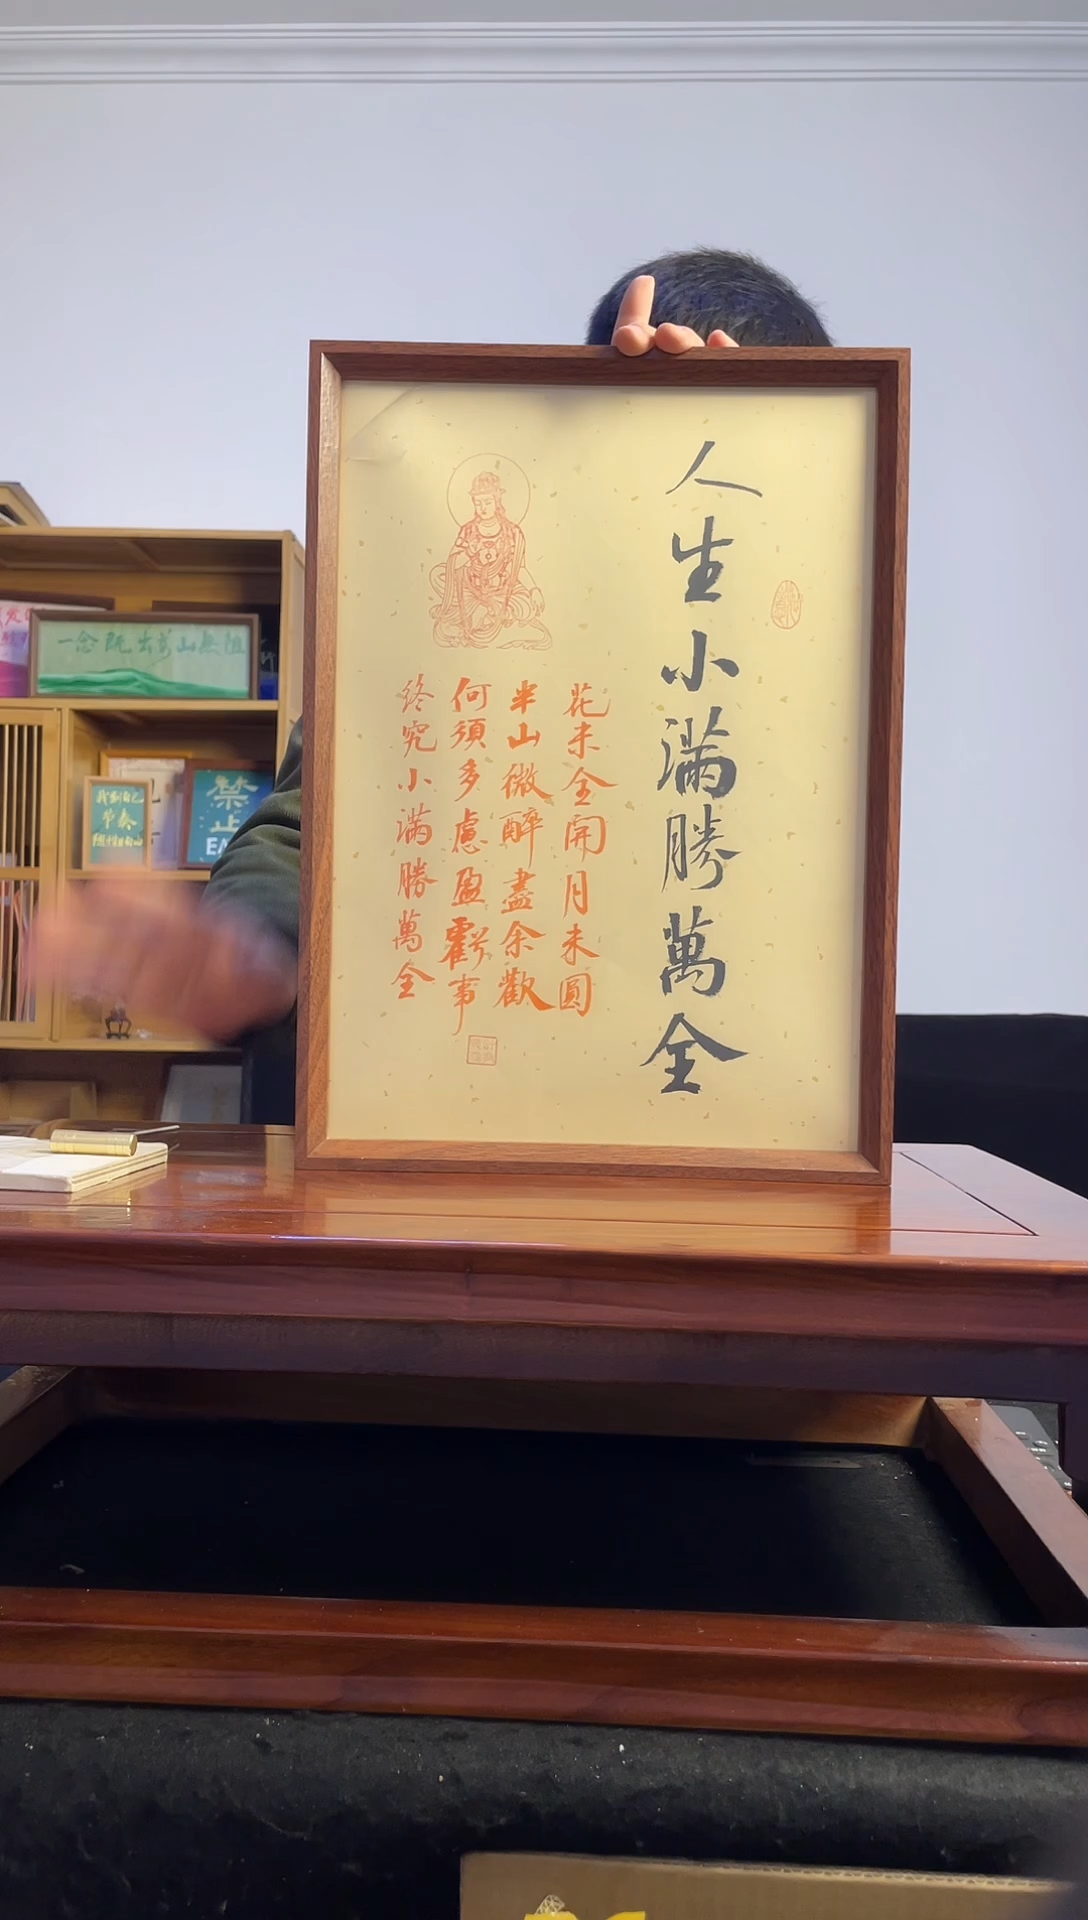 人生小滿勝萬全
花未全開月未圓
半山微醉盡余歡
何須多慮盈虧事
終究小滿勝萬全
一念既出萬山無阻
節奏
禁止